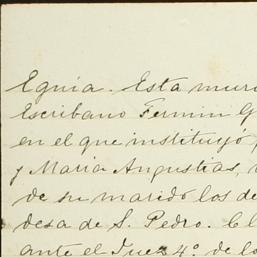 Eguía. Esta muri
Escribano Fermin G
en el que instituyó
y María Angustias,
de su marido los de
desa de S. Pedro. El
ante el Juez 4º. de lo